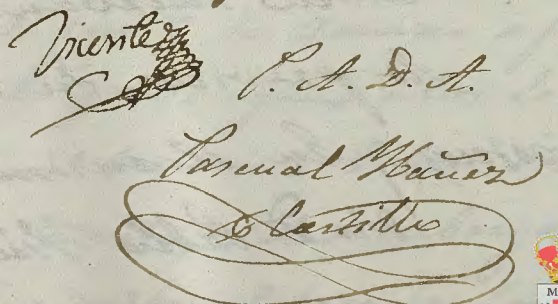 Vicente
P. A. D. A.
Pascual Ybañez
Castillo
M